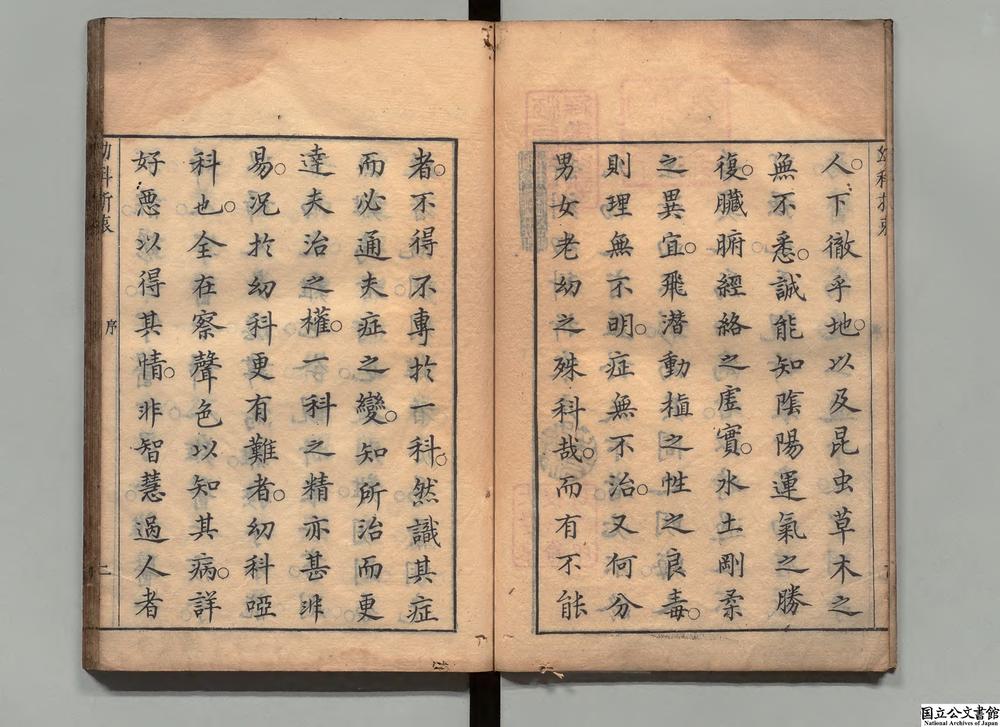 人。下徹乎地。以及昆虫草木之
無不悉。誠能知陰陽運氣之勝
復。臟腑經絡之虛實。水土剛柔
之異宜。飛潜動植之性之良毒。
則理無不明。症無不治。又何分
男女老幼之殊科哉。而有不能
者。不得不專扵一科。然識其症
而必通夫症之變。知所治而更
達夫治之權。一科之精亦甚非
易。況扵幼科更有難者。幼科啞
科也。全在察聲色以知其病。詳
好惡以得其情。非智慧過人者
幼科折衷
序
二
国立公文書館
National Archives of Japan